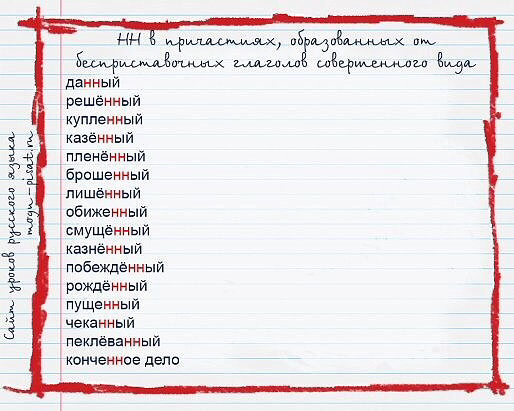 НН в причастиях, образованных от
бесприставочных глаголов совершенного вида
данный
решённый
купленный
казённый
пленённый
брошенный
лишённый
обиженный
смущённый
казнённый
побеждённый
рождённый
пущенный
чеканный
пеклёванный
конченное дело
Сайт уроков русского языка
mogu-pisat.ru